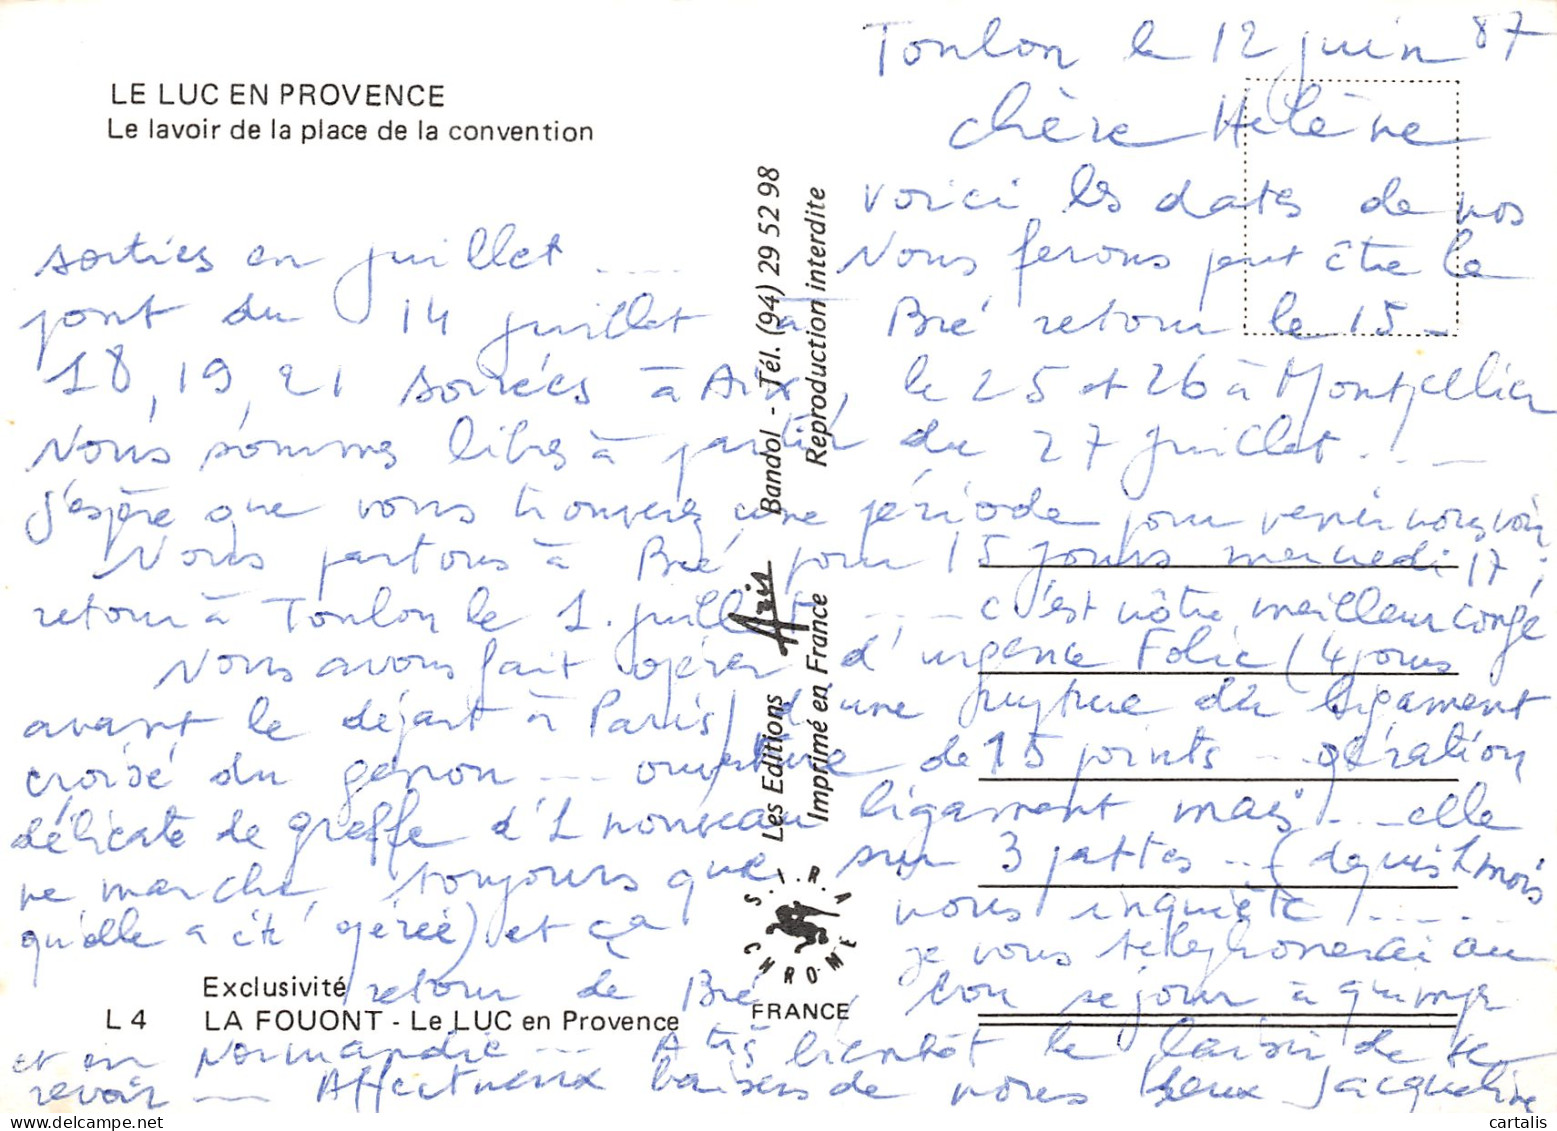 LE LUC EN PROVENCE
Le lavoir de la place de la convention
Toulon le 12 juin 87
chère Hélène
voici les dates de nos
sorties en juillet .... Nous ferons peut être le
pont du 14 juillet à Bré retour le 15 -
18, 19, 21 soirées à Aix, le 25 et 26 à Montpellier
Nous sommes libres à partir du 27 juillet ...
j'espère que vous trouverez une période pour venir nous voir
Nous partons à Bré pour 15 jours mercredi 17 ;
retour à Toulon le 1. juillet ... c'est nôtre meilleur congé
Nous avons fait opérer d'urgence Folie (4 jours
avant le départ à Paris) d'une rupture du ligament
croisé du genou ... ouverture de 15 points ... opération
délicate de greffe d'1 nouveau ligament mais ... elle
ne marche, toujours que sur 3 pattes ... (depuis 1 mois
qu'elle a été opérée) et ça nous inquiète .....
je vous téléphonerai au
retour de Bré, bon séjour à Quimper
et en Normandie ... A très bientôt le plaisir de te
revoir ... Affectueux baisers de nous deux Jacqueline
Les Editions Aris Bandol - Tél. (94) 29 52 98
Imprimé en France Reproduction interdite
S.I.R.A
CHROME
FRANCE
Exclusivité
L 4 LA FOUONT - Le LUC en Provence
cartalis
delcampe.net